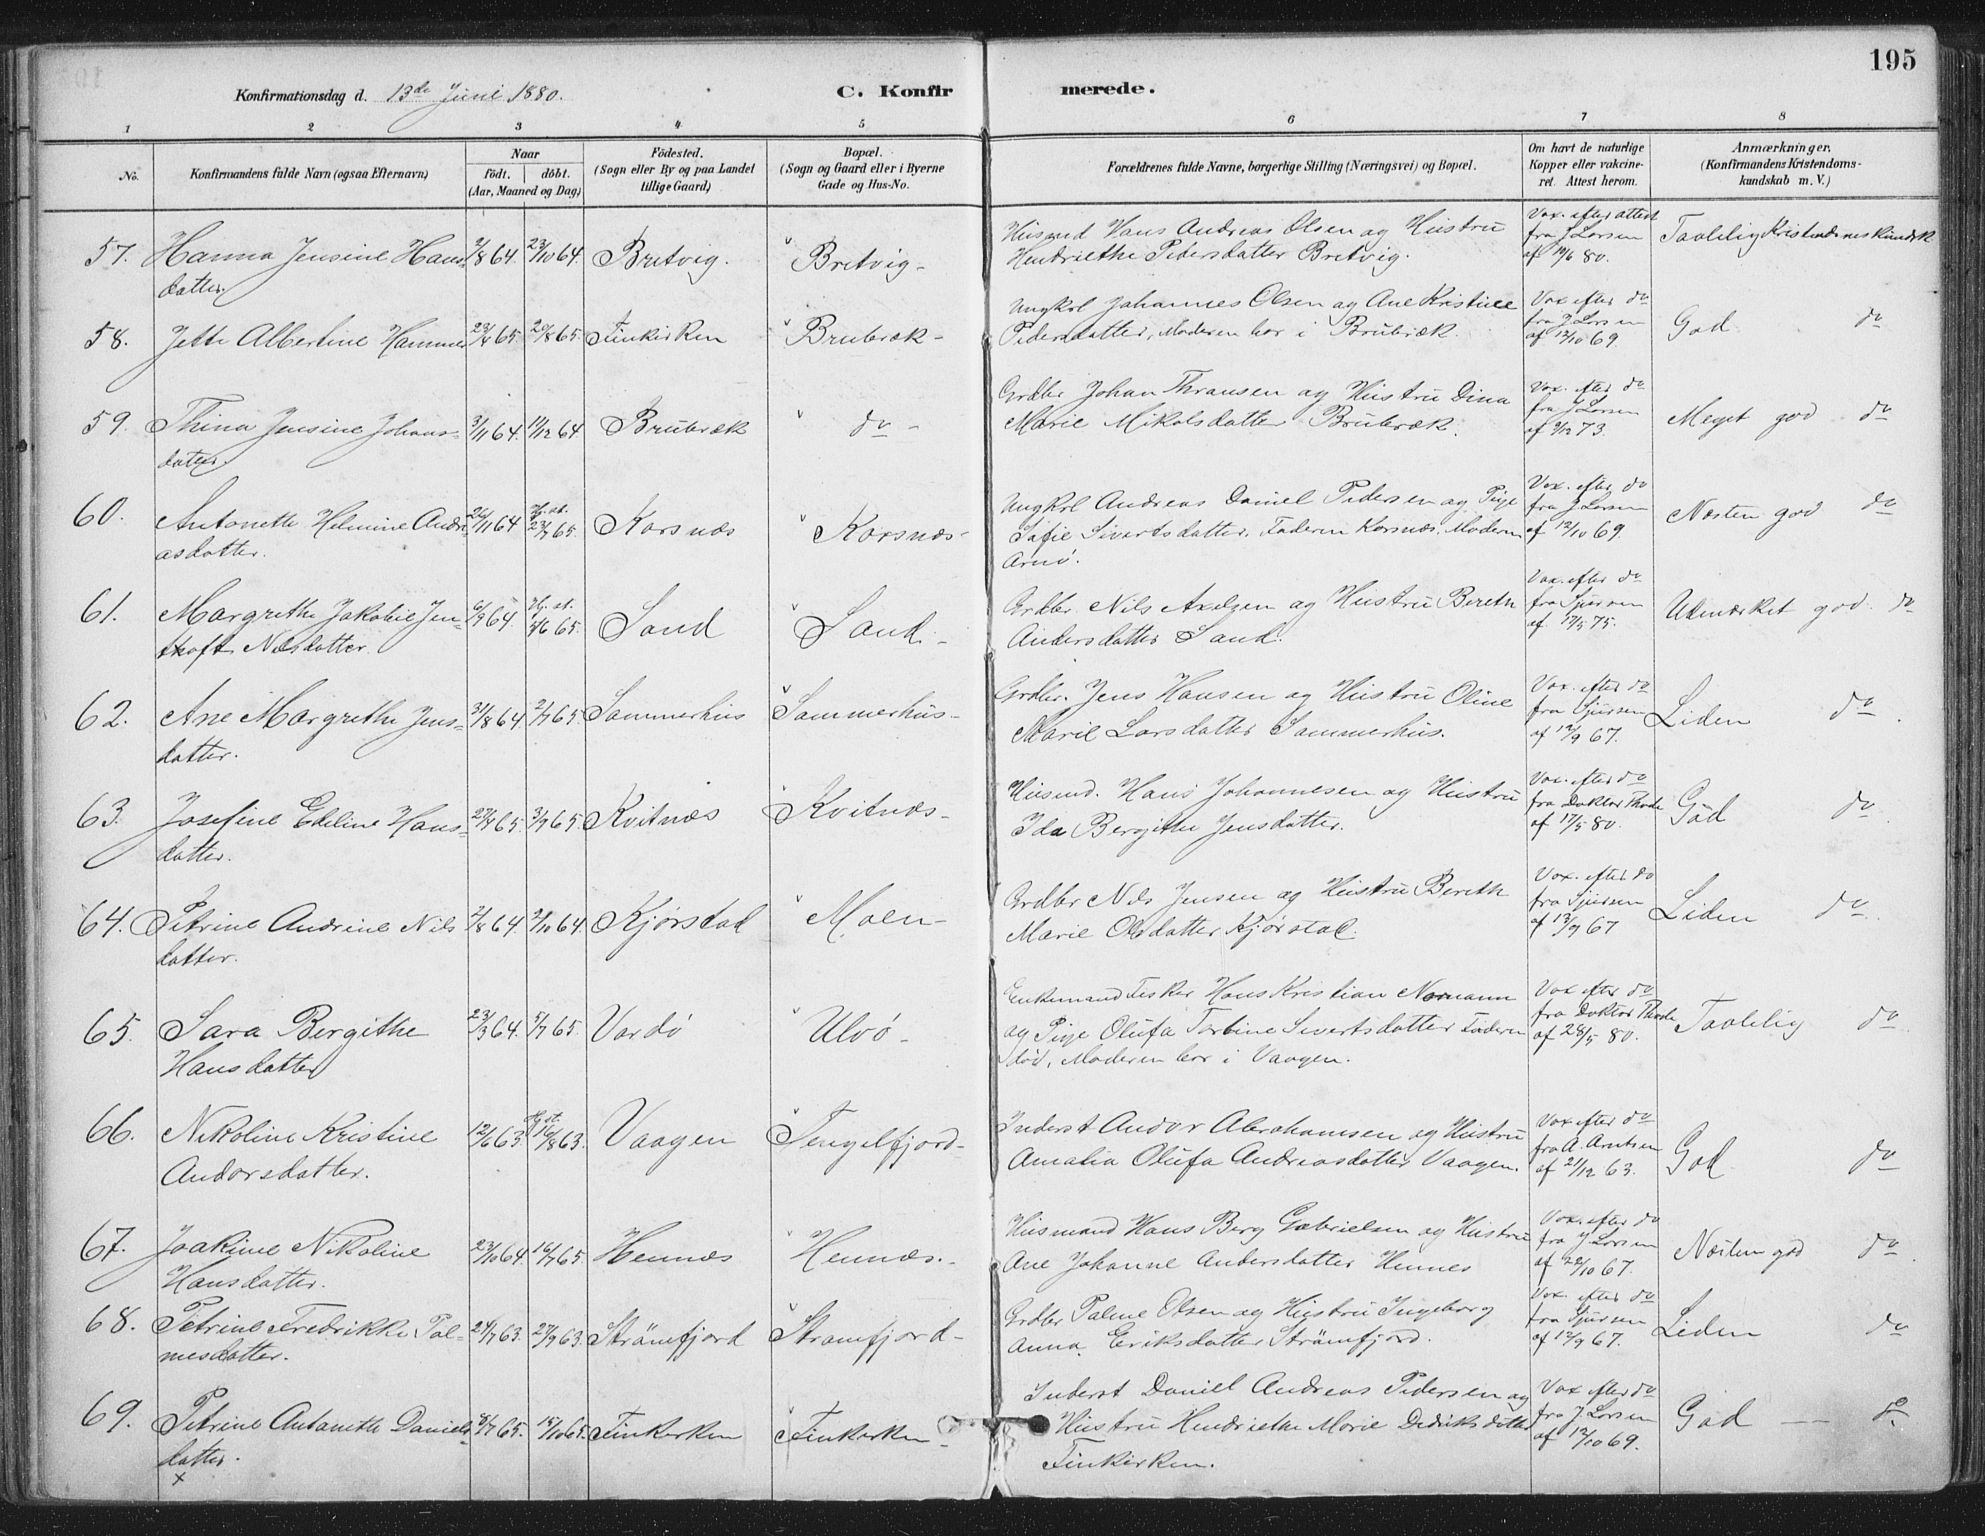 195
Konfirmationsdag d. 13de Juni 1880. C. Konfirmerede.
1 2 3 4 5 6 7 8
No. Konfirmandens fulde Navn (ogsaa Efternavn) Naar født. døbt. (Aar, Maaned og Dag) Fødested. (Sogn eller By og paa Landet tillige Gaard) Bopæl. (Sogn og Gaard eller i Byerne Gade og Hus-No. Forældrenes fulde Navne, borgerlige Stilling (Næringsvei) og Bopæl. Om havt de naturlige Kopper eller vakcineret. Attest herom. Anmærkninger. (Konfirmandens Kristendomskundskab m. V.)
57. Hanna Jensine Hansdatter. 2/8 64. 23/10 64. Bretvig. Bretvig Husmd Hans Andreas Olsen og Hustru Hendriethe Pedersdatter Bretvig. Vax. efter attest fra J Larsen af 80. Taalelig Kristendomskundsk
58. Jette Albertine Hammer 65. 20/8 65. Finkirken Brubræk Ungkrl Johannes Olsen og Ane Kristine Pedersdatter, Moderen bor i Brubræk. Vax efter do fra J Larsen af 12/10 69. God do
59. Thina Jensine Johansdatter. 3/11 64. 11/12 64 Brubræk do Grdbr Johan Thransen og Hustru Dina Marie Mikalsdatter Brubræk. Vax. efter do fra J Larsen af 9/12 73. Meget god do
60. Antonette Helmine Andreasdatter. 26/11 64 Hj. st. 23/7 65. Korsnæs Korsnæs Ungkrl Andreas Daniel Pedersen og Pige Sofie Sivertsdatter. Faderen Korsnæs, Moderen Arnö. Vax. efter do fra J Larsen af 12/10 69. Næsten god do
61. Margrethe Jakobie Jenthoft Nilsdatter. 6/9 64. Hj. st. 65. Sand Sand Grdbr. Nils Axelsen og Hustru Bereth Andersdatter Sand. Vax. efter do fra Sjursen af 17/5 75. Udmærket god. do
62. Ane Margrethe Jensdatter. 31/8 64. 2/7 65. Sommerhus Sommerhus Grdbr. Jens Hansen og Hustru Oline Marie Larsdatter Sommerhus. Vax. efter do fra Sjursen af 12/9 67. Liden do.
63. Josefine Edeline Hansdatter. 65. 3/9 65. Kvitnæs Kvitnæs Husmd. Hans Johannesen og Hustru Ida Bergithe Jensdatter. Vax. efter do fra Doktor Thode af 17/5 80. God do.
64. Petrine Andrine Nilsdatter. 2/8 64. 2/10 64. Kjørstad Moen Grdbr Nils Jensen og Hustru Bereth Marie Olsdatter Kjørstad. Vax. efter do fra Sjursen af 13/9 67 Liden do.
65. Sara Bergithe Hansdatter 23/3 64. 5/7 65. Vardö Ulvö Enkemand Fisker Hans Kristian Normann og Pige Olufa Torbine Sivertsdatter Faderen död, Moderen bor i Vaagen. Vax efter do fra Doktor Thode af 28/5 80. Taalelig do
66. Nikoline Kristine Andorsdatter. 12/6 63. Hj. st. 16/8 63. Vaagen Tengelfjord Inderst Andor Abrahamsen og Hustru Amalia Olufa Andreasdatter Vaagen. Vax efter do fra A. Arntsen af 21/12 63. God do
67. Joakime Nikoline Hansdatter. 23/10 64. 16/7 65. Hennæs Hennæs. Husmand Hans Berg Gabrielsen og Hustru Ane Johanne Andersdatter Hennes Vax. efter do fra J Larsen af 22/10 67. Næsten god do
68. Petrine Fredrikke Palmesdatter. 63. 27/9 63. Strömfjord Strömfjord Grdbr Palme Olsen og Hustru Ingeborg Anna Eriksdatter Strömfjord. Vax. efter do fra Sjursen af 12/9 67. Liden do
69. Petrine Antonette Danielsdatter. 65. 65. Finkirken Finkirken Inderst Daniel Andreas Pedersen og Hustru Hendriethe Marie Dedriksdatter Finkirken. Vax efter do fra J Larsen af 12/10 69. God do
x